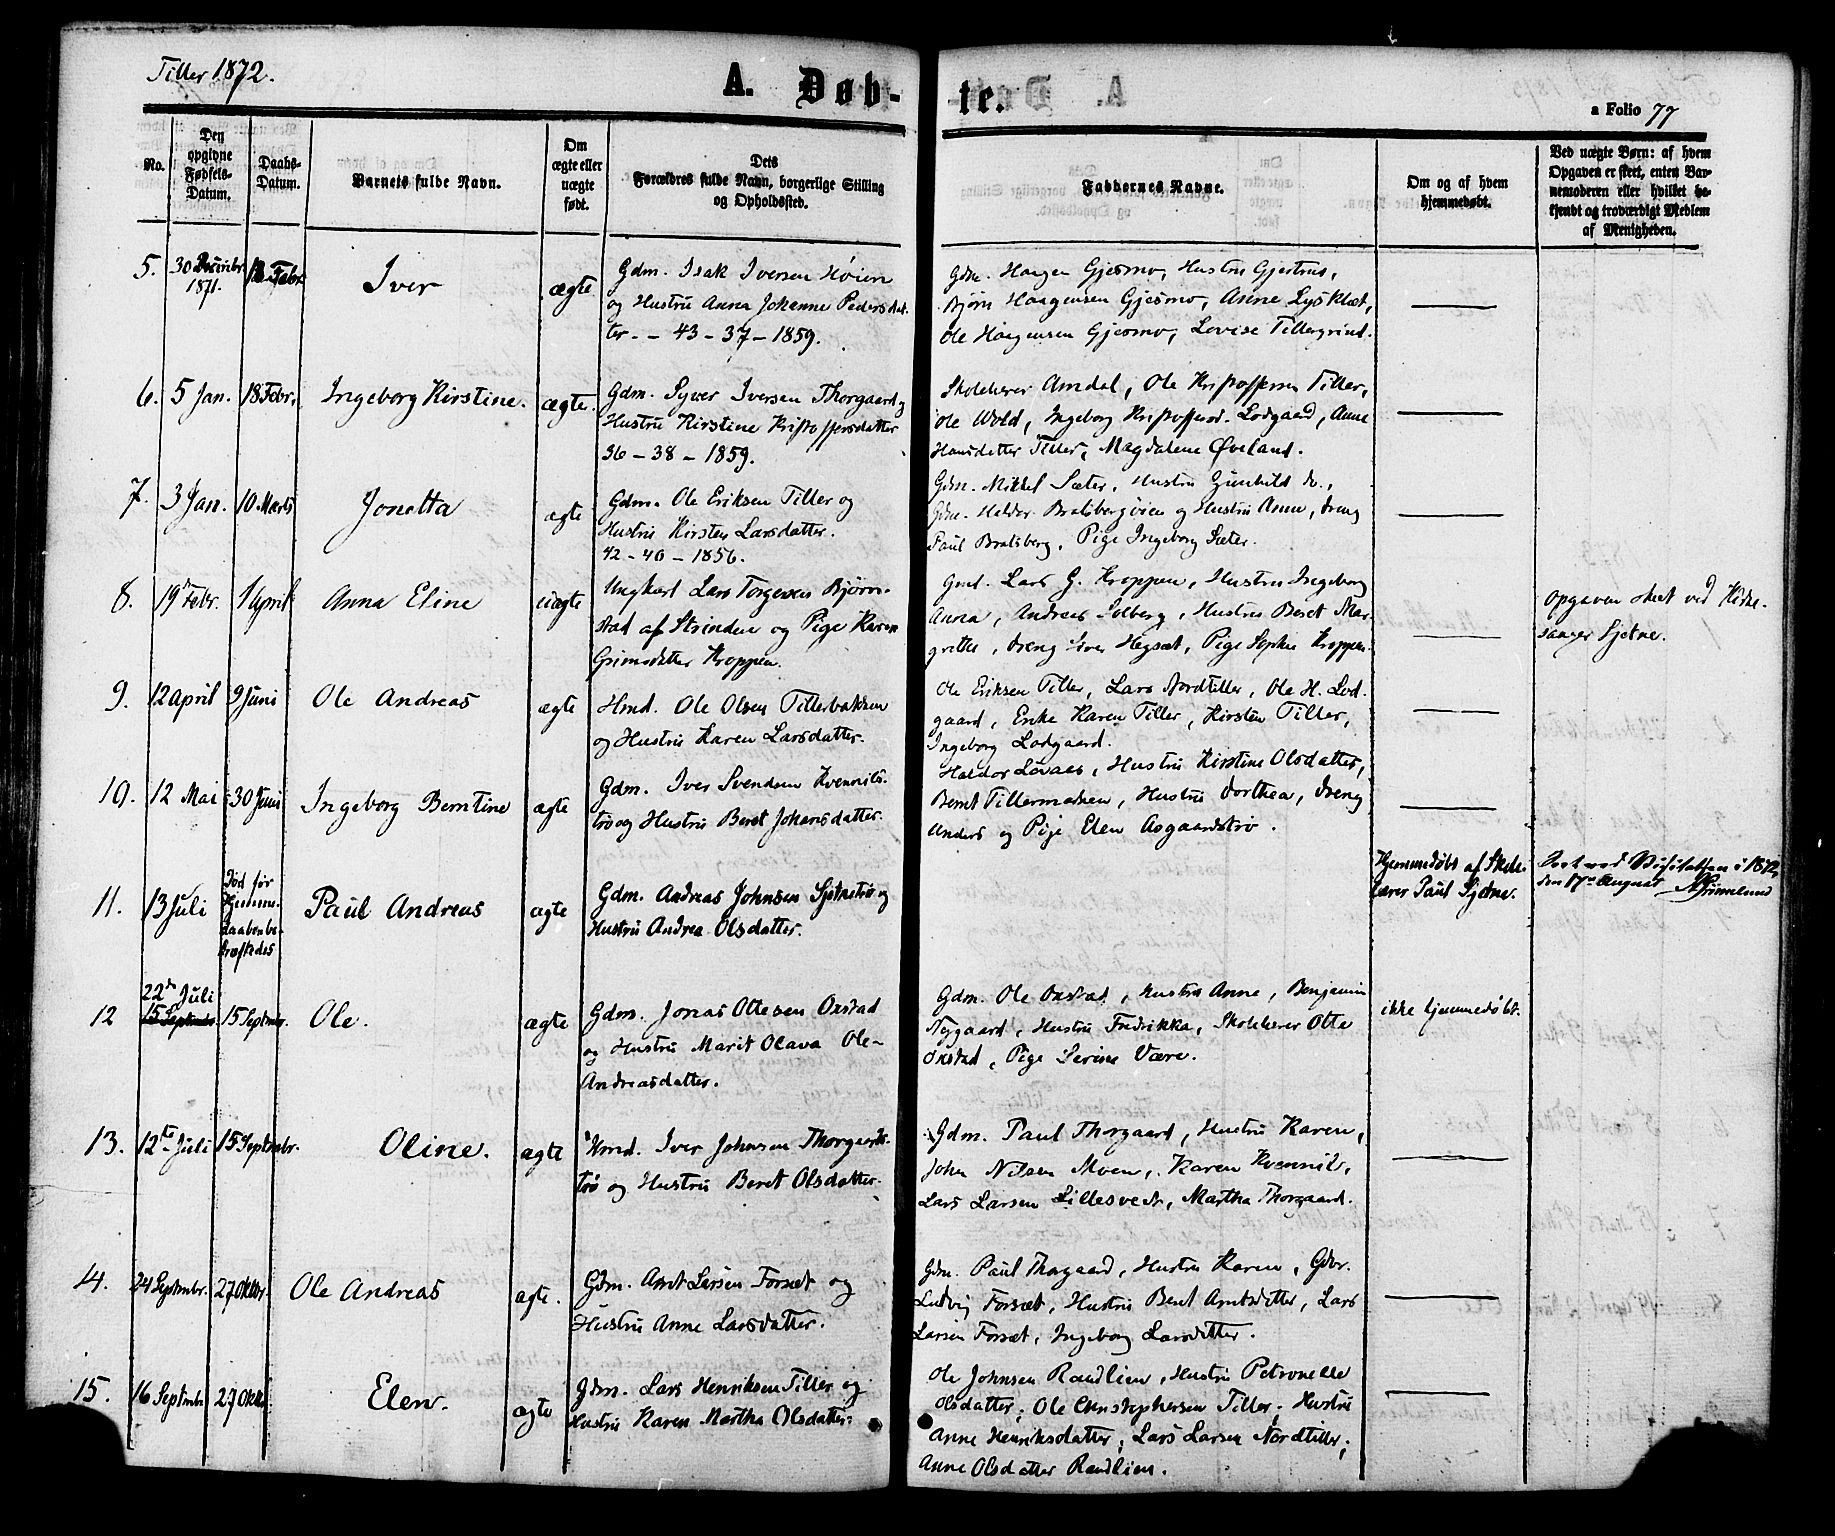 Tiller 1872.
A. Døbte.
a Folio 77
No.
Den opgivne Fødsels-Datum.
Daabs-Datum.
Barnets fulde Navn.
Om ægte eller uægte født.
Dets Forældres fulde Navn, borgerlige Stilling og Opholdssted.
Faddernes Navne.
Om og af hvem hjemmedøbt.
Ved uægte Børn: af hvem Opgaven er skeet, enten Barnemoderen eller hvilket bekjendt og troværdigt Medlem af Menigheden.
5. 30 Decembr. 1871. Febr. Iver ægte
Gdm. Isak Iversen Høien
og Hustru Anna Johanne Pedersdat-
ter. - 43 - 37 - 1859.
Gdm. Haagen Gjesmo, Hustru Gjertrud,
Bjørn Haagensen Gjesmo, Anne Lysklæt,
Ole Haagensen Gjesmo, Lovise Tillergrind.
6. 5 Jan. 18 Febr. Ingeborg Kirstine. ægte.
Gdm. Syver Iversen Thorgaard og
Hustru Kirstine Kristoffersdatter
36 - 38 - 1859.
Skolelærer Amdal, Ole Kristoffersen Tiller,
Ole Wold, Ingeborg Kristoffersd. Lodgaard, Anne
Hansdatter Tiller, Magdalene Øveland.
7. 3 Jan. 10 Marts Jonetta ægte
Gdm. Ole Eriksen Tiller og
Hustru Kirsten Larsdatter.
42 - 40 - 1856.
Gdm. Mikkel Sæter, Hustru Gunhild do.,
Gdm. Haldor Bratsbergveien og Hustru Anne, Dreng
Paul Bratsberg, Pige Ingeborg Sæter.
8. 19 Febr. 1 April Anna Eline uægte
Ungkarl Lars Torgersen Bjørn-
stad af Strinden og Pige Karen
Grimsdatter Kroppen.
Gmd. Lars G. Kroppen, Hustru Ingeborg
Anna, Andreas Solberg, Hustru Beret Mar-
grethe, Dreng Iver Hegsæt, Pige Sophie Kroppen.
Opgaven skeet ved Kirke-
sanger Sjetne.
9. 12 April 9 Juni Ole Andreas ægte
Hmd. Ole Olsen Tillerbakken
og Hustru Karen Larsdatter.
Ole Eriksen Tiller, Lars Nordtiller, Ole H. Lod-
gaard, Enke Karen Tiller, Kirsten Tiller,
Ingeborg Lodgaard.
10. 12 Mai 30 Juni Ingeborg Berntine ægte
Gdm. Iver Svendsen Kvennils-
trø og Hustru Beret Johansdatter.
Haldor Lovaas, Hustru Kirstine Olsdatter,
Bernt Tillermælen, Hustru Dorthea, Dreng
Anders og Pige Elen Asgaardstrø.
11. 13 Juli Død før Hjemme-
daaben be-
kræftedes
Paul Andreas ægte
Gdm. Andreas Johnsen Sjetnetrø og
Hustru Andrea Olsdatter.
Hjemmedøbt af Skole-
lærer Paul Sjetne.
Seet ved Visitatsen i 1872,
den 17de August
Grimelund
12 22de Juli
15 Septmbr. 15 Septmbr. Ole. ægte
Gdm. Jonas Ottesen Oxstad
og Hustru Marit Olava Ole-
Andreasdatter.
Gdm. Ole Oxstad, Hustru Anne, Benjamin
Nygaard, Hustru Fredrikka, Skolelærer Otte
Oxstad, Pige Serine Være.
ikke hjemmedøbt.
13. 12te Juli 15 Septmbr. Oline. ægte
Hmd. Iver Johnsen Thorgaards-
trø og Hustru Beret Olsdatter.
Gdm. Paul Thorgaard, Hustru Karen,
John Nilsen Moen, Karen Kvennil,
Lars Larsen Lillesvedr, Martha Thorgaard.
14. 24 Septmbr. 27 Oktbr. Ole Andreas ægte.
Gdm. Arnt Larsen Forsæt og
Hustru Anne Larsdatter.
Gdm. Paul Thorgaard, Hustru Karen, Gdbr.
Ludvig Forsæt, Hustru Beret Arntsdatter, Lars
Larsen Forsæt, Ingeborg Larsdatter.
15. 16 Septmbr 27 Oktbr Elen. ægte
Gdm. Lars Henriksen Tiller og
Hustru Karen Martha Olsdatter.
Ole Johnsen Rædlien, Hustru Petronelle
Olsdatter, Ole Christophersen Tiller. Hustru
Anne Henriksdatter, Lars Larsen Nordtiller,
Anne Olsdatter Rædlien.